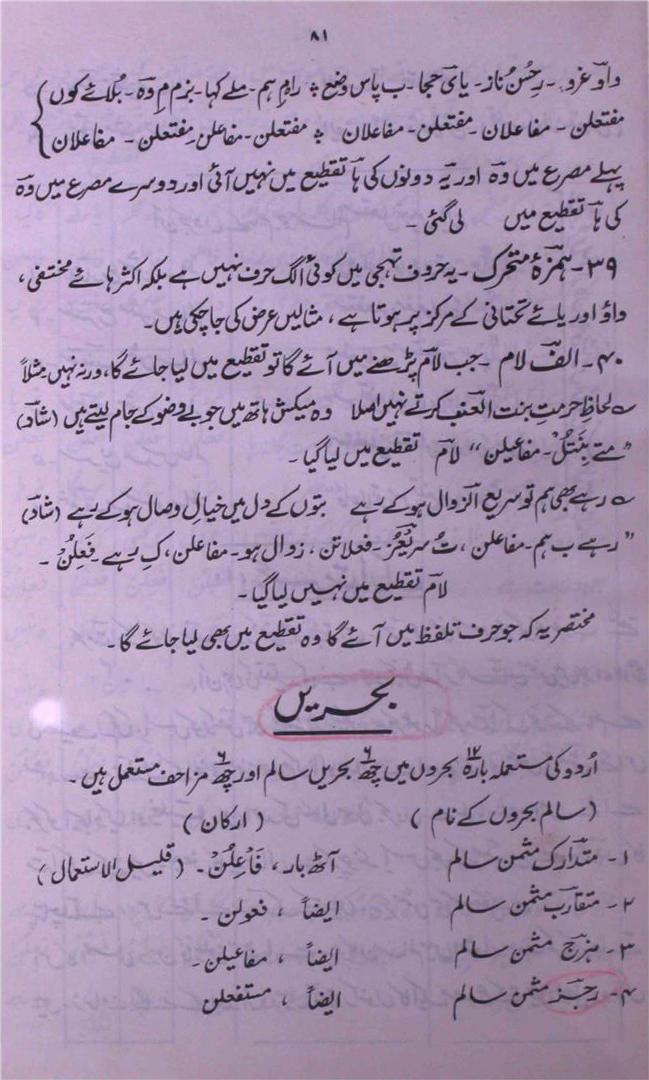 ۸۱
واوٗ غرو۔ رِحسن ناز۔ یایٔ حجا۔ ب پاس وضع ؞ راہِ ہم۔ ملے کہا۔ بزم مِ وہ۔ بُلائے کوں
مفتعلن۔ مفاعلان۔ مفتعلن۔ مفاعلان ؞ مفتعلن۔ مفاعلن۔ مفتعلن۔ مفاعلان
پہلے مصرع میں وہ اور یہ دونوں کی ہا تقطیع میں نہیں آئی اور دوسرے مصرع میں وہ
کی ہا تقطیع میں لی گئی۔
۳۹۔ ہمزۂ متحرک۔ یہ حروف تہجی میں کوئی الگ حرف نہیں ہے بلکہ اکثر ہائے مختفی،
واؤ اور یائے تحتانی کے مرکز پر ہوتا ہے، مثالیں عرض کی جا چکی ہیں۔
۴۰۔ الف لام۔ جب لام پڑھنے میں آئے گا تو تقطیع میں لیا جائے گا، ورنہ نہیں مثلاً
؎ لحاظ حرمتِ بنت العنب کرتے نہیں اصلا وہ میکش ہاتھ میں جو بے وضو کے جام لیتے ہیں (شاد)
”متے بِنتُلْ۔ مفاعیلن“ لام تقطیع میں لیا گیا۔
؎ رہے بھی ہم تو سریع الزوال ہو کے رہے بتوں کے دل میں خیالِ وصال ہو کے رہے (شاد)
”رہے ب ہم۔ مفاعلن، تُ سریعُز۔ فعلاتن، زوال ہو۔ مفاعلن، کِ رہے۔ فَعِلُنْ۔
لام تقطیع میں نہیں لیا گیا۔
مختصر یہ کہ جو حرف تلفظ میں آئے گا وہ تقطیع میں بھی لیا جائے گا۔
بحریں
اُردو کی مستعملہ بارہ ۱۲ بحروں میں چھ ۶ بحریں سالم اور چھ ۶ مزاحف مستعمل ہیں۔
(سالم بحروں کے نام) (ارکان)
۱۔ متدارک مثمن سالم آٹھ بار، فَاعِلُنْ۔ (قلیل الاستعمال)
۲۔ متقارب مثمن سالم ایضاً، فعولن۔
۳۔ ہزج مثمن سالم ایضاً، مفاعیلن۔
۴۔ رجز مثمن سالم ایضاً، مستفعلن